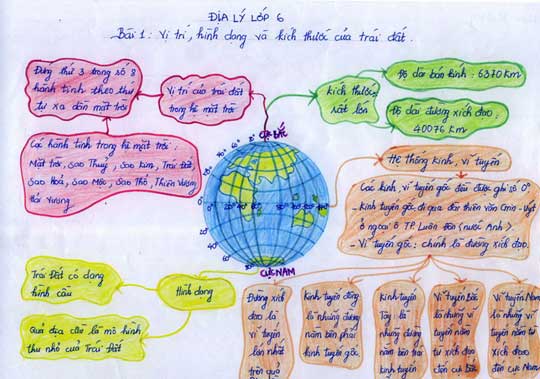 ĐỊA LÝ LỚP 6
Bài 1 : Vị trí, hình dạng và kích thước của trái đất.
Đứng thứ 3 trong số 8
hành tinh theo thứ
tự xa dần mặt trời
Vị trí của trái đất
trong hệ mặt trời
Các hành tinh trong hệ mặt trời :
Mặt trời, Sao Thuỷ, Sao Kim, Trái Đất,
Sao Hoả, Sao Mộc, Sao Thổ, Thiên Vương
Hải Vương
kích thước
rất lớn
Độ dài bán kính : 6370 Km
Độ dài đường xích đạo :
40076 Km
CỰC BẮC
CỰC NAM
Hệ thống kinh, vĩ tuyến
Các kinh, vĩ tuyến gốc đều được ghi số 0°.
- Kinh tuyến gốc đi qua đài thiên văn Grin - Uýt
ở ngoại ô TP. Luân Đôn (nước Anh)
- Vĩ tuyến gốc : chính là đường xích đạo.
Trái Đất có dạng
hình cầu
Hình dạng
Quả địa cầu là mô hình
thu nhỏ của Trái Đất
Đường xích
đạo là
vĩ tuyến
lớn nhất
trên quả
Kinh tuyến đông
là những đường
nằm bên phải
kinh tuyến gốc
Kinh tuyến
Tây là
những đường
nằm bên trái
kinh tuyến
Vĩ tuyến Bắc
là những vĩ
tuyến nằm
từ xích đạo
đến cực bắc
Vĩ tuyến Nam
là những vĩ
tuyến nằm từ
xích đạo
đến cực Nam